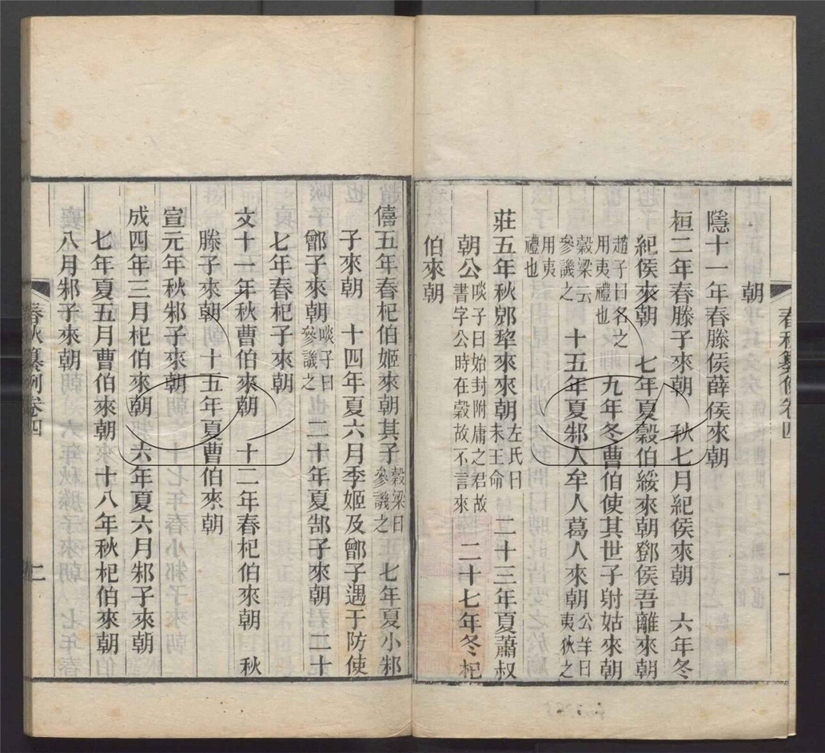 朝
隱十一年春滕侯薛侯來朝
桓二年春滕子來朝 秋七月紀侯來朝 六年冬
紀侯來朝 七年夏穀伯綏來朝鄧侯吾離來朝
趙子曰名之用夷禮也 九年冬曹伯使其世子射姑來朝
穀梁云參譏之 十五年夏邾人牟人葛人來朝公羊曰夷狄之
用夷禮也
莊五年秋郳犂來來朝左氏曰未王命 二十三年夏蕭叔
朝公啖子曰始封附庸之君故書字公時在穀故不言來 二十七年冬杞
伯來朝
春秋纂例卷四
一
僖五年春杞伯姬來朝其子穀梁曰參譏之 七年夏小邾
子來朝 十四年夏六月季姬及鄫子遇于防使
鄫子來朝啖子曰參譏之 二十年夏郜子來朝 二十
七年春杞子來朝
文十一年秋曹伯來朝 十二年春杞伯來朝 秋
滕子來朝 十五年夏曹伯來朝
宣元年秋邾子來朝
成四年三月杞伯來朝 六年夏六月邾子來朝
七年夏五月曹伯來朝 十八年秋杞伯來朝
八月邾子來朝
春秋纂例卷四
二